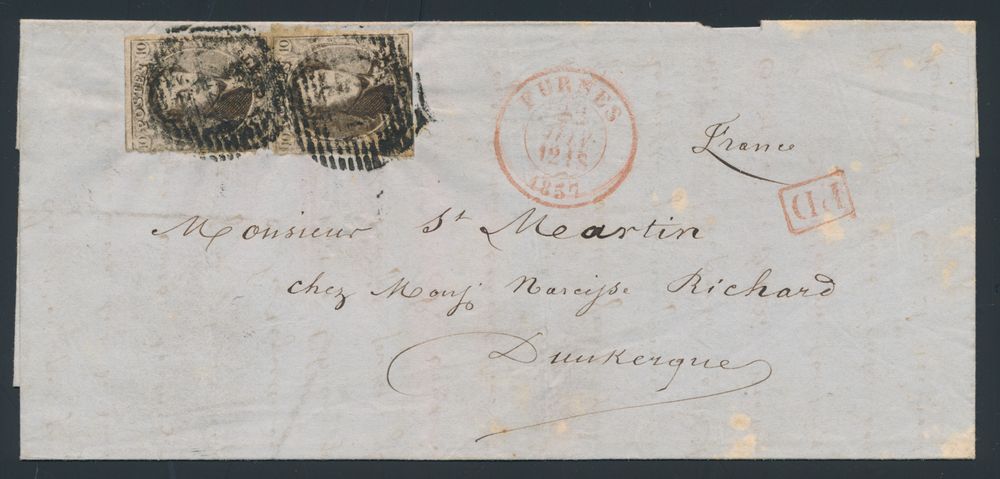 10 POSTES 10
10 10
FURNES
1857
France
PD
Monsieur St Martin
chez Monsʳ Narcisse Richard
Dunkerque